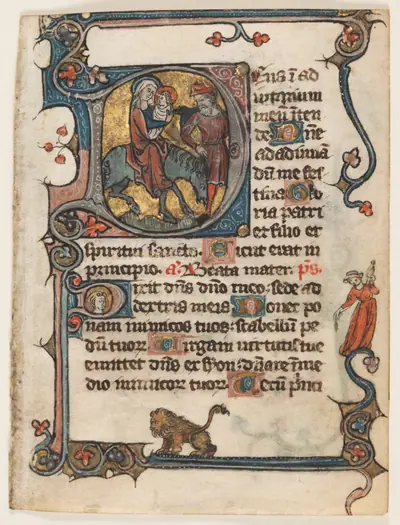 Deus ī ad
iutorium
meū īten
de Dñe
ad adiuuā
dū me fes
tina Glo
ria patri
et filio et
spiritui sancto. Sicut erat in
principio. a. Beata mater. ps.
Dixit dñs dño meo: sede ad
dextris meis Donec po
nam inimicos tuos: scabellū pe
dū tuor Virgam uirtutis tue
emittet dñs ex syon: dñare ī me
dio inimicor tuor Tecū p̄nci